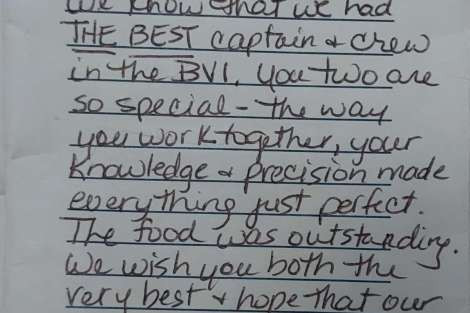 We know that we had
THE BEST captain & crew
in the BVI. You two are
so special - the way
you work together, your
knowledge & precision made
everything just perfect.
The food was outstanding.
We wish you both the
very best & hope that our